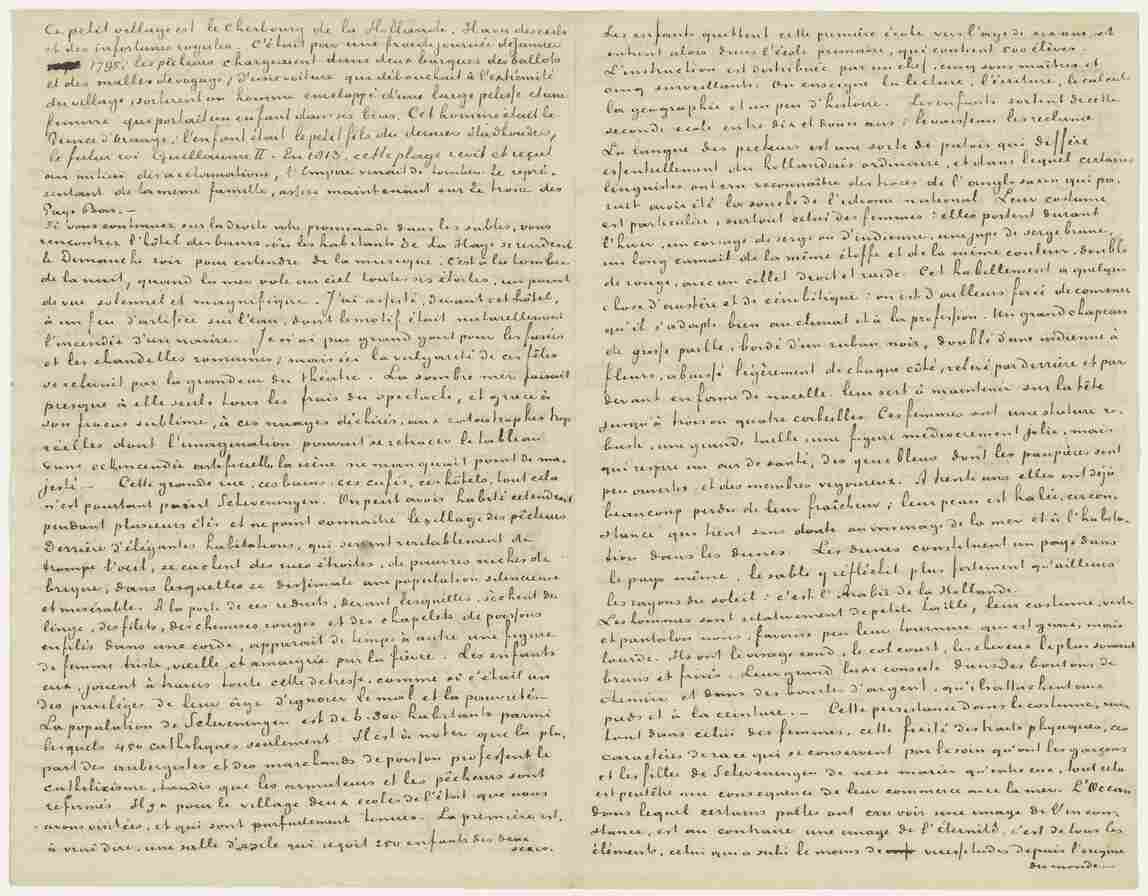 Ce petit village est le Cherbourg de la Hollande. Il a vu des exils
et des infortunes royales. C'était par une froide journée de janvier
1795, les pêcheurs chargeaient dans deux barques des ballots
et des malles de voyage; d'une voiture qui débouchait à l'extrémité
du village, sortirent un homme enveloppé d'une large pelisse et une
femme qui portait un enfant dans ses bras. Cet homme était le
Prince d'Orange; l'enfant était le petit fils du dernier stadhouder,
le futur roi Guillaume II. En 1813, cette plage revit et reçut
au milieu des acclamations, l'Empire venait de tomber. Le repré-
sentant de la même famille, assise maintenant sur le trône des
Pays Bas.—
Si vous continuez sur la droite votre promenade dans les sables, vous
rencontrez l'hôtel des bains, où les habitants de La Haye se rendent
le Dimanche soir pour entendre de la musique. C'est à la tombée
de la nuit, quand la mer vole au ciel toutes ses étoiles, un point
de vue solennel et magnifique. J'ai assisté, devant cet hôtel,
à un feu d'artifice sur l'eau, dont le motif était naturellement
l'incendie d'un navire. Je n'ai pas grand goût pour les fusées
et les chandelles romaines; mais ici la vulgarité de ces fêtes
se relevait par la grandeur du théâtre. La sombre mer faisait
presque à elle seule tous les frais du spectacle, et grâce à
son fracas sublime, à ces nuages déchirés, aux catastrophes trop
réelles dont l'imagination pouvait se retracer le tableau
dans cet incendie artificielle, la scène ne manquait point de ma-
jesté — Cette grande rue, ces bains, ces cafés, ces hôtels, tout cela
n'est pourtant point Scheveningen. On peut avoir habité cet endroit
pendant plusieurs étés et ne point connaître le village des pêcheurs
Derrière d'élégantes habitations, qui servent véritablement de
trompe l'oeil, se cachent des rues étroites, de pauvres niches de
brique, dans lesquelles se dissimule une population silencieuse
et misérable. A la porte de ces réduits, devant lesquelles, sèchent du
linge, des filets, des chemises rouges et des chapelets de poissons
enfilés dans une corde, apparaît de temps à autre une figure
de femme triste, vieille et amaigrie par la fièvre. Les enfants
eux, jouent à travers toute cette détresse, comme si c'était un
des privilèges de leur âge d'ignorer le mal et la pauvreté.—
La population de Scheveningen est de 6.300 habitants parmi
lesquels 450 catholiques seulement. Il est à noter que la plu-
part des aubergistes et des marchands de poisson professent le
catholicisme, tandis que les armateurs et les pêcheurs sont
réformés. Il y a pour le village deux écoles de l'état que nous
avons visitées, et qui sont parfaitement tenues. La première est,
à vrai dire, une salle d'asile qui reçoit 250 enfants des deux
sexes.
Les enfants quittent cette première école vers l'age de six ans, et
entrent alors dans l'école primaire, qui contient 500 élèves.
L'instruction est distribuée par un chef, cinq sous maîtres et
cinq surveillants. On enseigne la lecture, l'écriture, le calcul,
la géographie et un peu d'histoire. Les enfants sortent de cette
seconde école entre dix et douze ans; le vaisseau les réclame
La langue des pecheurs est une sorte de patois qui diffère
essentiellement du hollandais ordinaire, et dans lequel certains
linguistes ont cru reconnaître des traces de l'anglo-saxon qui pa-
rait avoir été la souche de l'idiome national. Leur costume
est particulier, surtout celui des femmes: elles portent durant
l'hiver, un corsage de serge ou d'indienne, une jupe de serge brune,
un long camail de la même étoffe et de la même couleur, double
de rouge, avec un collet droit et raide. Cet habillement a quelque
chose d'austère et de cénobitique: on est d'ailleurs forcé de convenir
qu'il s'adapte bien au climat et à la profession. Un grand chapeau
de grosse paille, bordé d'un ruban noir, doublé d'une indienne à
fleurs, abaissé légèrement de chaque côté, relevé par derrière et par
devant en forme de nacelle, leur sert à maintenir sur la tête
jusqu'à trois ou quatre corbeilles. Ces femmes ont une stature ro-
buste, une grande taille, une figure médiocrement jolie, mais
qui respire un air de santé, des yeux bleus dont les paupières sont
peu ouvertes, et des membres vigoureux. A trente ans elles ont déjà
beaucoup perdu de leur fraîcheur; leur peau est halée, circon-
stance qui tient sans doute au voisinage de la mer et à l'habita-
tion dans les dunes. Les dunes constituent un pays dans
le pays même, le sable y réfléchit plus fortement qu'ailleurs
les rayons du soleil: c'est l'Arabie de la Hollande.
Les hommes sont relativement de petite taille, leur costume, veste
et pantalon noirs, favorise peu leur tournure qui est grave, mais
lourde. Ils ont le visage rond, le col court, les cheveux le plus souvent
bruns et frisés. Leur grand luxe consiste dans des boutons de
chemise et dans des boucles d'argent, qu'ils attachent aux
pieds et à la ceinture.— Cette persistance dans le costume, sur-
tout dans celui des femmes, cette fixité des traits physiques, ces
caractères de race qui se conservent par le soin qu'ont les garçons
et les filles de Scheveningen de ne se marier qu'entre eux, tout cela
est peutêtre une conséquence de leur commerce avec la mer. L'Océan
dans lequel certains poètes ont cru voir une image de l'incon-
stance, est au contraire une image de l'éternité, c'est de tous les
éléments, celui qui a subi le moins de vicissitudes depuis l'origine
du monde.—